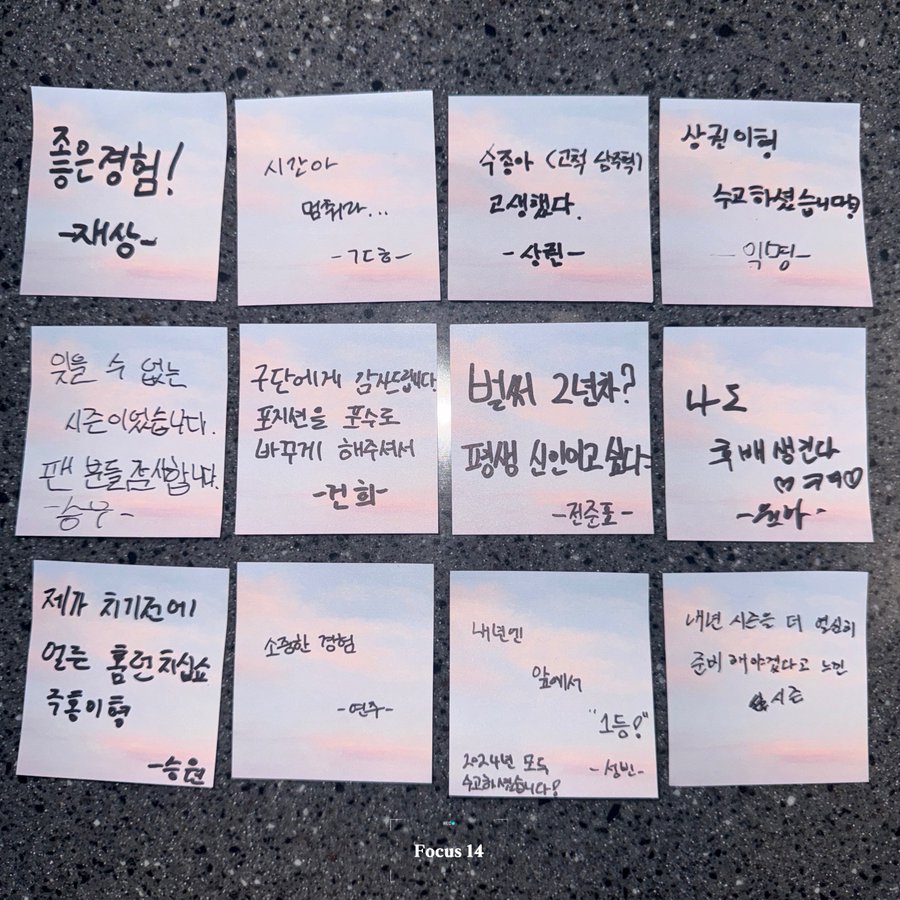 좋은경험!
-재상-
시간아
멈춰라...
-ㄱㄷㅎ-
수종아 (고척 삼국혁)
고생했다.
-상권-
상권이형
수고하셨습니다!
-익명-
잊을 수 없는
시즌이었습니다.
팬 분들 감사합니다.
구단에게 감사드립니다
포지션을 포수로
바꾸게 해주셔서
-건희-
벌써 2년차?
평생 신인이고 싶다.
-전준표-
나도
후배 생긴다
♡ ㅋㅋㅋ♡
제가 치기전에
얼른 홈런치십쇼
주홍이형
-승원-
소중한 경험
-연주-
내년엔
앞에서
"1등!"
2024년 모두
수고하셨습니다!
-성빈-
내년 시즌을 더 열심히
준비 해야겠다고 느낀
시즌
Focus 14